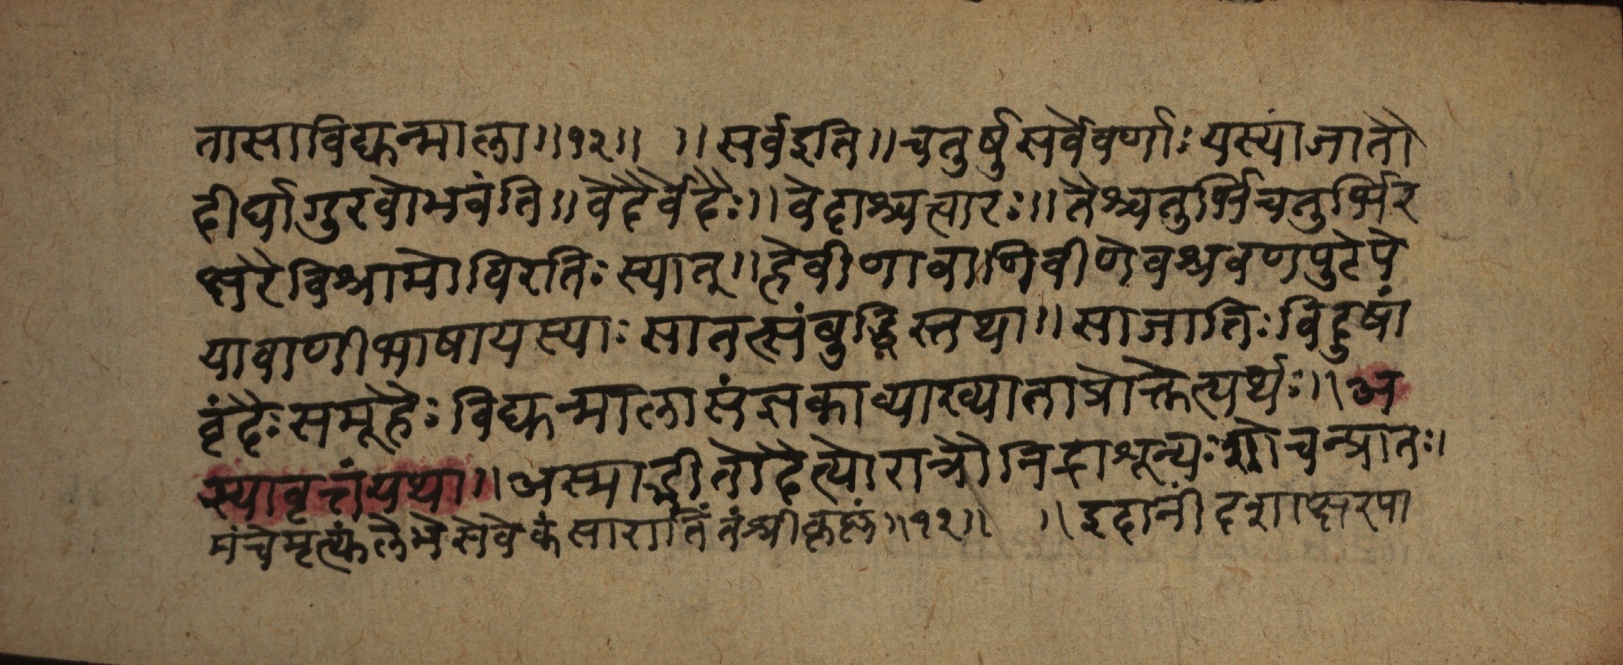 तासाविद्युन्माला॥१२॥ ॥सर्वइति॥चतुर्षुसर्वेवर्णाः यस्यांजातौ
दीर्घागुरवोभवंति॥वेदैर्वेदैः॥वेदाश्चत्वारः॥तैश्चतुर्भिचतुर्भिर
क्षरैविश्रामोविरतिः स्यात्॥हेवीणावाणिवीणेवश्रवणपुटेपे
यावाणीभाषायस्याः सातत्संबुद्धिस्तथा॥साजातिः विदुषां
वृंदैः समूहैः विद्युन्मालासंज्ञकाव्याख्याताप्रोक्तेत्यर्थः॥अ
स्यावृत्तंयथा॥अस्माद्भीतोदैत्योरात्रौनिद्राशून्यः शोचन्प्रातः।
मंचेमृत्युंलेभेसेवेकंसारातिंतंश्रीकृष्णं॥१२॥ ॥इदानींदशाक्षरपा